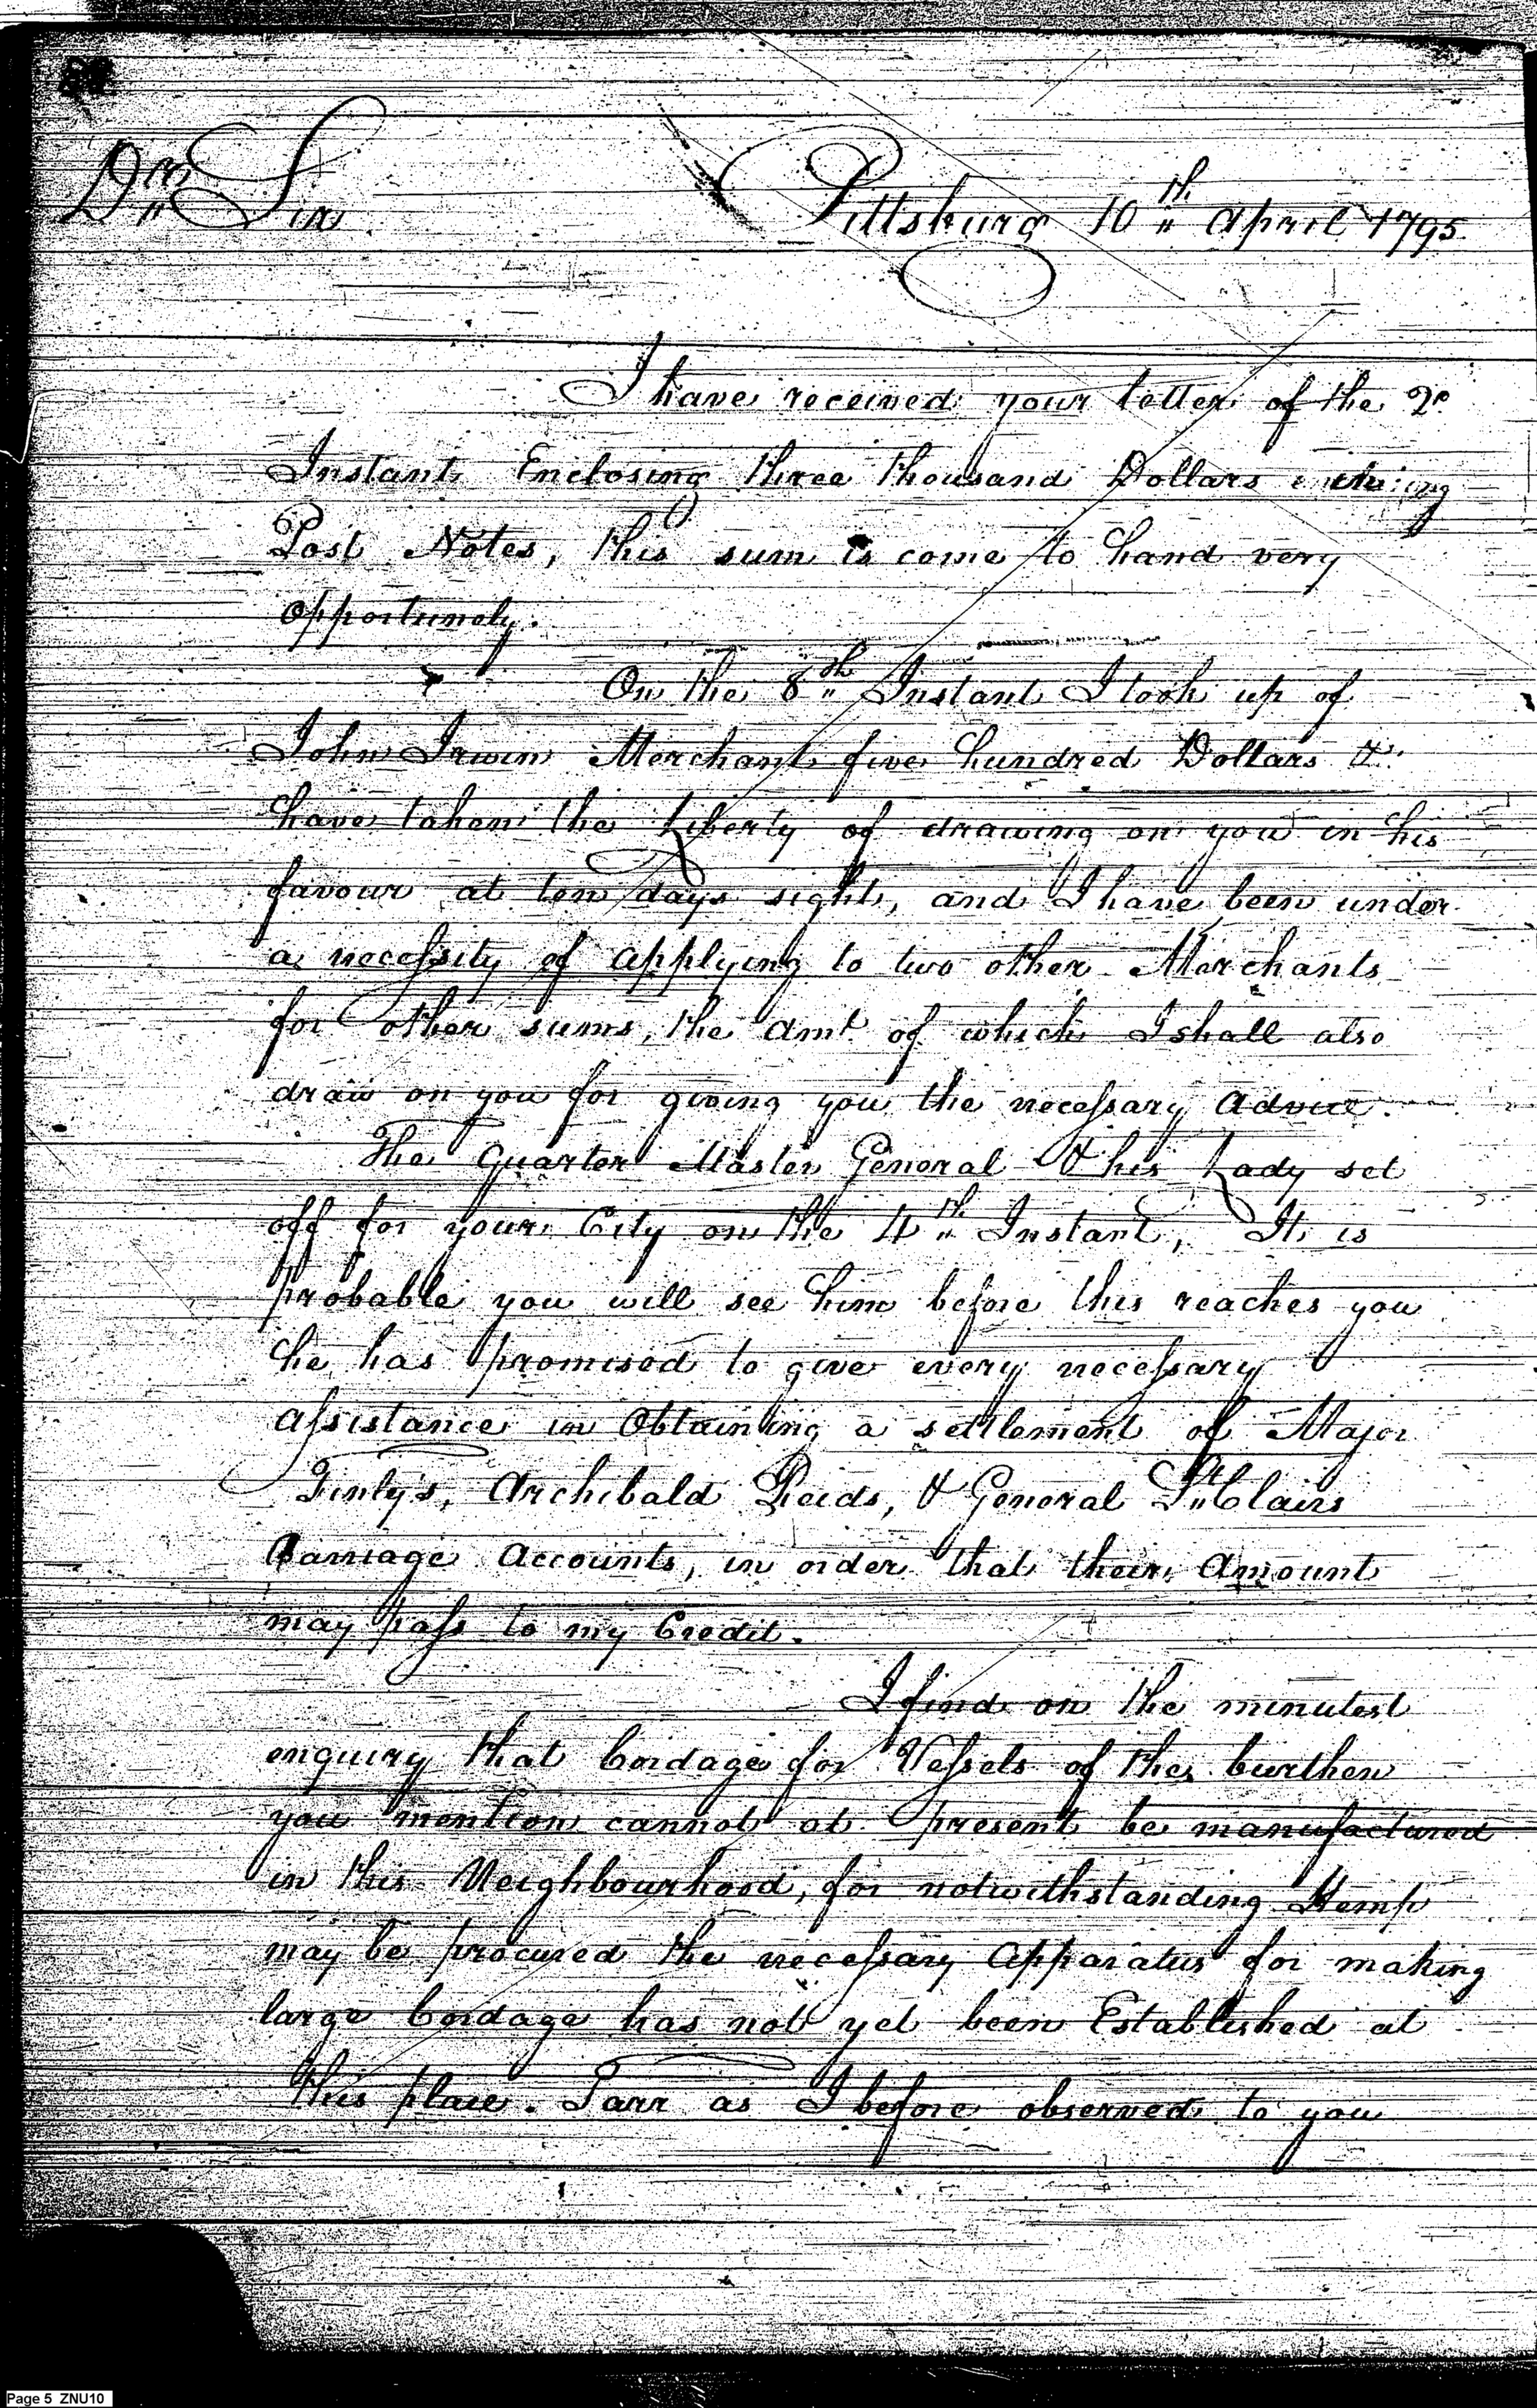 Dr Sir
Pittsburg 10th April 1795
I have received your letter of the 2d
Instant Enclosing three thousand Dollars
Post Notes, this sum is come to hand very
opportunely.
On the 8th Instant I took up of
John Irwin Merchant five hundred Dollars &
have taken the Liberty of drawing on you in his
favour at ten days sight, and I have been under
a necessity of applying to two other Merchants
for other sums, the amt. of which I shall also
draw on you for giving you the necessary Advice.
The Quarter Master General & his Lady set
off for your City on the 4th Instant, It is
probable you will see him before this reaches you
he has promised to give every necessary
assistance in Obtaining a settlement of Major
Finly's, Archibald Reids, & General St Clairs
Carriage Accounts, in order that their Amount
may pass to my Credit.
I find on the minutest
enquiry that Cordage for Vessels of the burthen
you mention cannot at present be manufactured
in this Neighbourhood, for notwithstanding Hemp
may be procured the necessary Apparatus for making
large Cordage has not yet been Established at
this place. Tarr as I before observed to you
Page 5 ZNU10